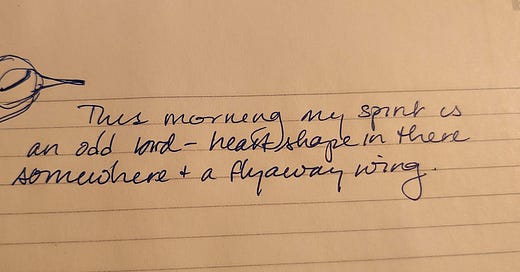 This morning my spirit is
an odd bird - heart shape in there
somewhere + a flyaway wing.